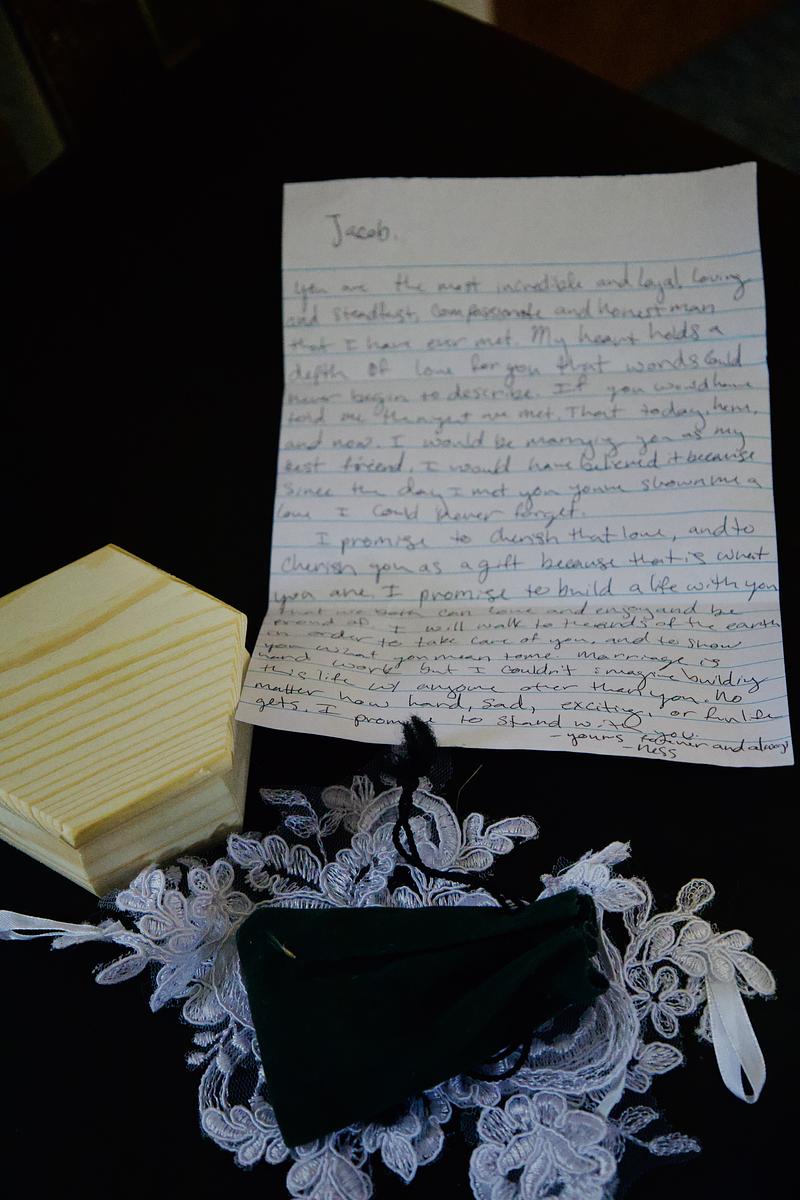 Jacob.
You are the most incredible and loyal, loving
and steadfast, compassionate and honest man
that I have ever met. My heart holds a
depth of love for you that words could
never begin to describe. If you would have
told me the day we met, That today, here,
and now. I would be marrying you as my
best friend, I would have believed it because
since the day I met you youve shown me a
love I could never forget.
I promise to cherish that love, and to
cherish you as a gift because that is what
you are. I promise to build a life with you
that we both can love and enjoy and be
proud of. I will walk to the ends of the earth
in order to take care of you, and to show
you what you mean to me. Marriage is
hard work but I couldn't imagine building
this life w/ anyone other than you. No
matter how hard, sad, exciting, or fun life
gets, I promise to stand with you.
- yours forever and always
- Ness